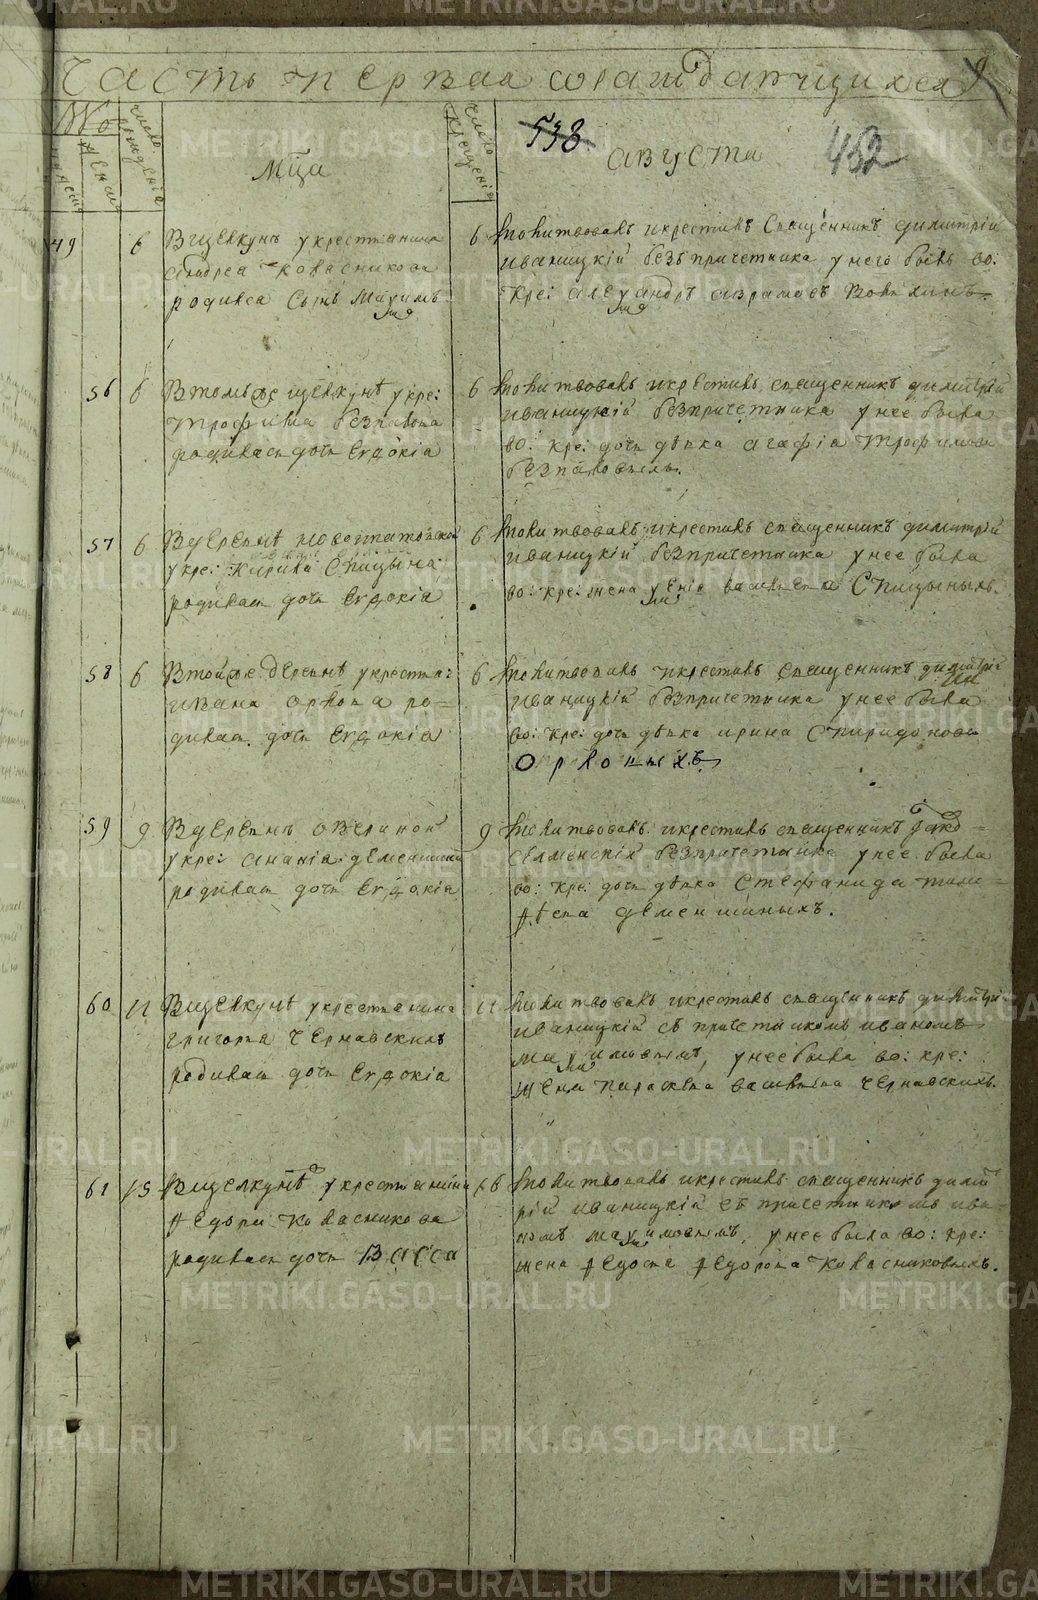 METRIKI.GASO-URAL.RU
Часть первая о раждающихся
№
Число рождения
Число крещения
538
452
Мца
августа
49
6
В щелкунъ у крестьянина
Андреа Коласникова
родился сынъ Маѯимъ
6
Молитвовалъ и крестилъ Священникъ димитрiй
иваницкiй безъ причетника у него былъ во:
кре: алеѯандръ аврамовъ
56
6
В томъ же щелкунѣ у кре:
трофима
родилась дочь Евдокiа
6
Молитвовалъ и крестилъ священникъ димитрiй
иваницкiй без причетника у нее была
во: кре: дочь дѣвка агафiа трофимова
57
6
В деревнѣ новоипатовской
у кре: Кирила Спицына
родилась дочь Евдокiа
6
Молитвовалъ и крестилъ священникъ димитрiй
иваницкiй без причетника у нее была
во: кре: жена уѯенiа василиева Спицыныхъ.
58
6
В той же деревнѣ у крестья:
ивана орлова ро=
дилась дочь Евдокiа
6
Молитвовалъ и крестилъ священникъ димитрiй
иваницкiй без причетника у нее была
во: кре: дочь дѣвка ирина Спиридонова
Орловыхъ
59
9
В деревнъ Авериной
у кре: ананiа деменшина
родилась дочь Евдокiа
9
Молитвовалъ и крестилъ священникъ Iаковъ
селменскiй без причетника у нее была
во: кре: дочь дѣвка Стефанида тимо=
ѳѣева деменшиныхъ.
60
11
В щелкунѣ у крестьянина
григорья Чернавскихъ
родилась дочь Евдокiа
11
Молитвовалъ и крестилъ священникъ димитрiй
иваницкiй съ причетникомъ иваномъ
маѯимовымъ, у нее была во: кре:
жена параскева василиева чернавскихъ.
61
15
В щелкунѣ у крестьянина
Ѳедора Коласникова
родилась дочь Васса
16
Молитвовалъ и крестилъ священникъ димит
рiй иваницкiй съ причетникомъ ива=
номъ маѯимовымъ, у нее была во: кре:
жена Ѳедосья Ѳедорова Коласниковыхъ.